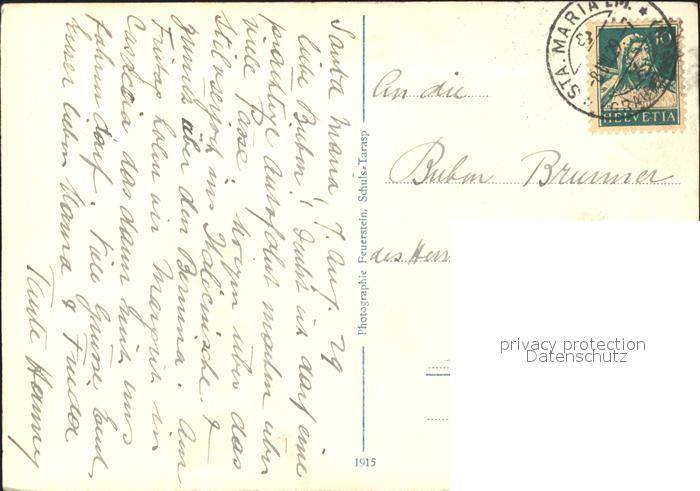 Santa Maria, 7. Aug. 29
Liebe Buben! Denkt ich darf eine
prächtige Autofahrt machen über
viele Pässe, morgen über das
Stilfserjoch ins Italienische &
über den Bernina. Am
Freitag holen wir Margrit in
das dann Euch uns
fahren darf. Viele Grüsse Euch,
Eurer lieben Mama &
Tante Hanny
Photographie Feuerstein, Schuls-Tarasp
1915
An die
Buben Brunner
des Herrn
STA. MARIA I.M.
10
HELVETIA
privacy protection
Datenschutz